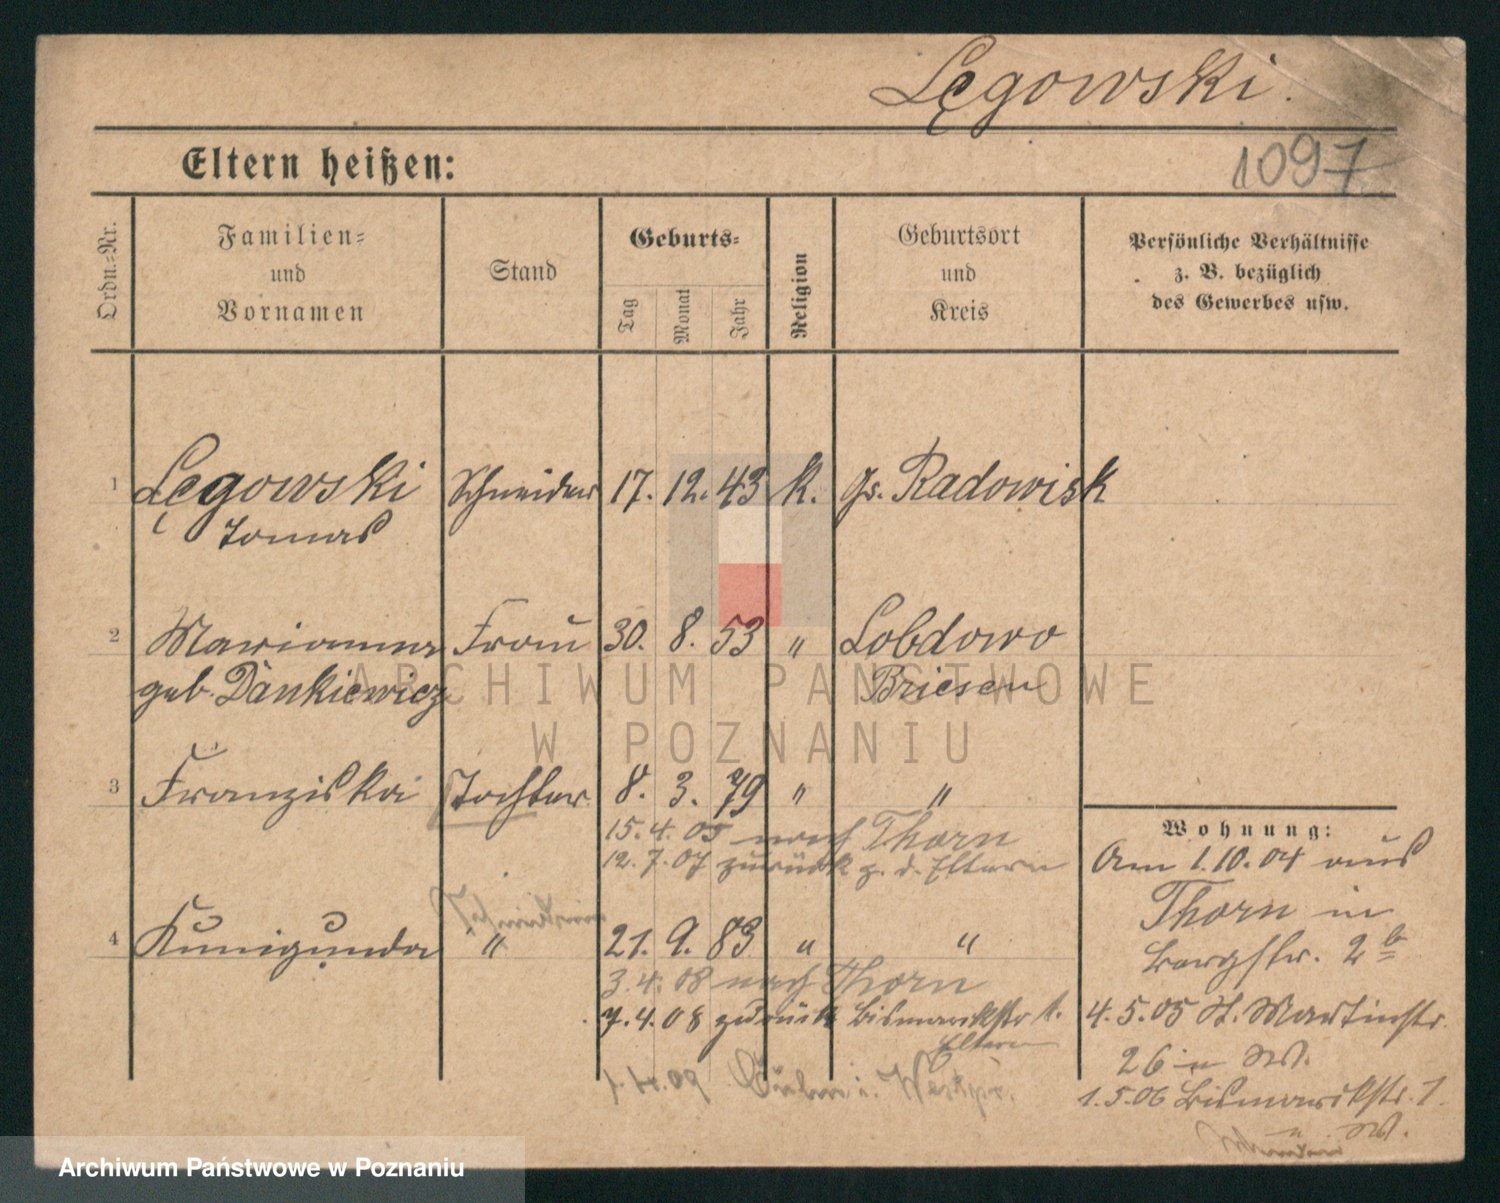 Łęgowski.
1097
Eltern heißen:
Ordn.-Nr.
Familien-
und
Vornamen
Stand
Geburts-
Tag
Monat
Jahr
Religion
Geburtsort
und
Kreis
Persönliche Verhältnisse
z. B. bezüglich
des Gewerbes usw.
1 Łęgowski Schneider 17. 12. 43 k. Gr. Radowisk
Tomas
2 Marianna Frau 30. 8. 53 " Lobdowo
geb. Dankiewicz Briesen
3 Franziska Tochter 8. 3. 79 " "
15. 4. 05 nach Thorn
12. 7. 07 zurück z. d. Eltern
4 Kunigunda " 21. 9. 83 " "
3. 4. 08 nach Thorn
7. 4. 08 zurück Bismarckstr 1.
Eltern
Wohnung:
Am 1.10.04 aus
Thorn in
Bergstr. 2b
4.5.05 St. Martinstr.
26
1.5.06 Bismarckstr. 1.
ARCHIWUM PAŃSTWOWE
W POZNANIU
Archiwum Państwowe w Poznaniu